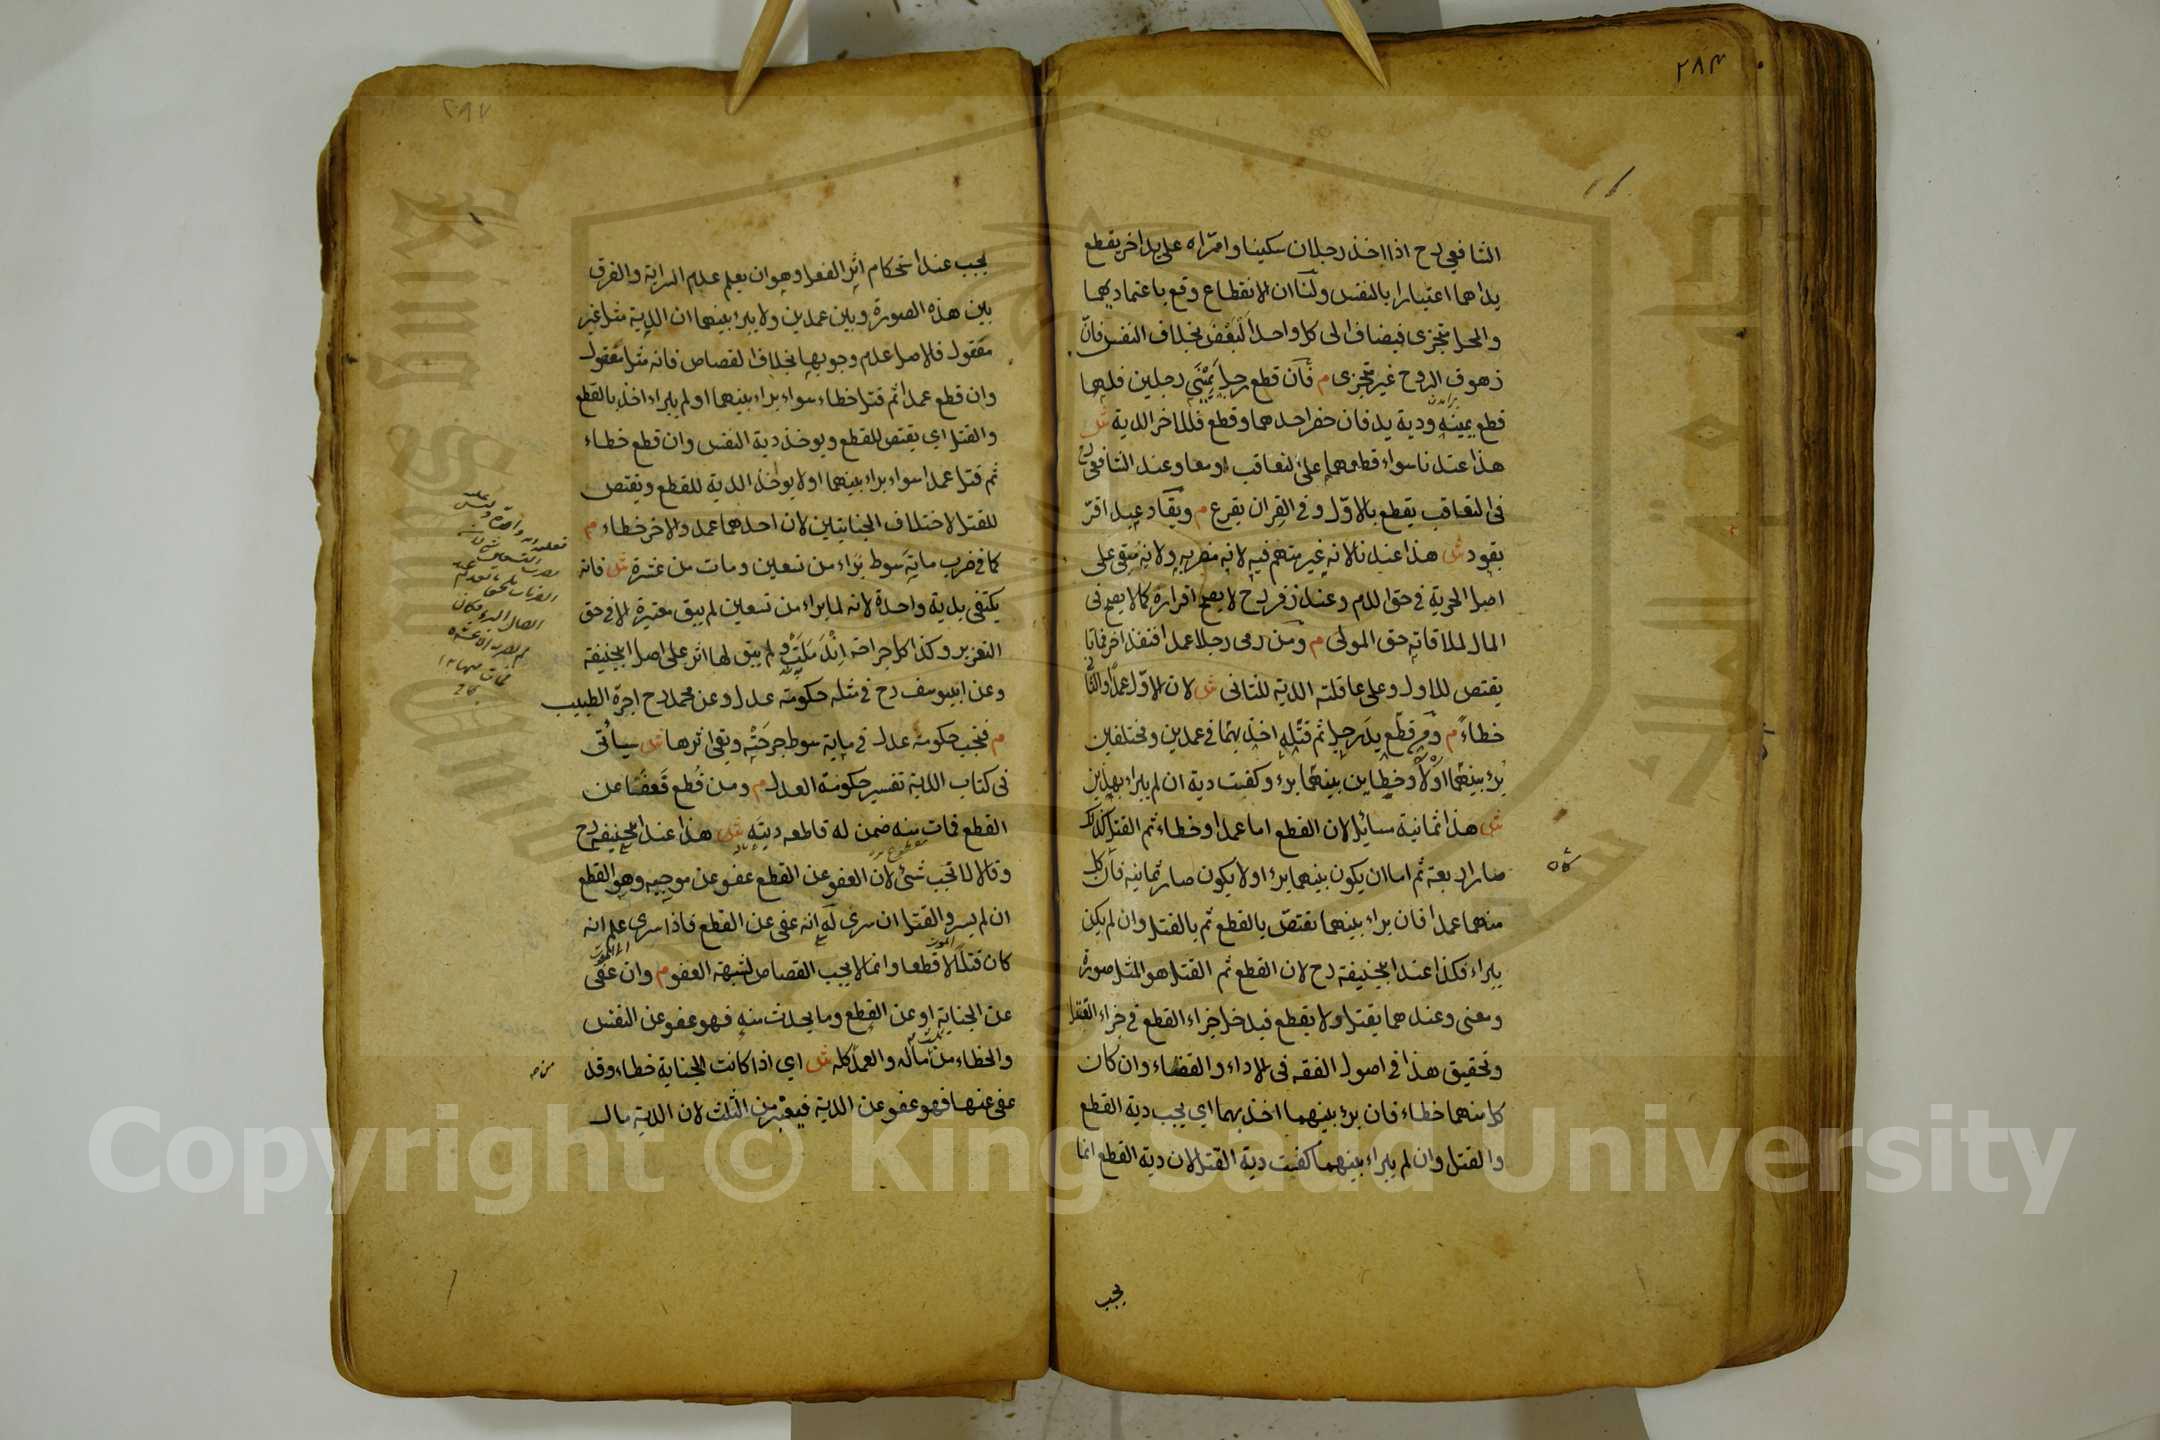 ٢٨٣
الشافعي رح اذا اخذ رجلان سكينا وامرّاه على يد اخر يقطع
يداهما اعتبارا بالنفس ولنا ان الانقطاع وقع باعتماديهما
والمحل متجزى فيضاف الى كل واحد البعض بخلاف النفس فانّ
زهوق الروح غير متجزى م فان قطع رجل يمينى رجلين فلهما
قطع يمينه ودية يد فان حضر احدهما وقطع فللاخر الدية ش
هذا عندنا سواء قطعهما على التعاقب او معا وعند الشافعي رح
فى التعاقب يقطع بالاوّل وفى القران يقرع م ويقاد عبد اقرّ
بقود ش هذا عندنا لانه غير متهم فيه لانه مضر به ولانه مبقى على
اصل الحرية فى حق الدم وعند زفر رح لا يصح اقراره كما لا يصح فى
المال لملاقاته حق المولى م ومن رمى رجلا عمدا فنفذ اخر فماتا
يقتص للاول وعلى عاقلته الدية للثانى ش لان الاوّل عمد والثانى
خطاء م ومن قطع يد رجل ثم قتله اخذ بهما فى عمدين ومختلفين
برء بينهما اولا وخطاين بينهما برء وكفت دية ان لم يبراء بهذين
ش هذا ثمانية مسائل لان القطع اما عمدا وخطاء ثم القتل كذلك
صار اربعة ثم اما ان يكون بينهما برء اولا يكون صار ثمانية فان كل
منهما عمدا فان براء بينهما يقتصّ بالقطع ثم بالقتل وان لم يكن
يبراء فكذا عند ابيحنيفة رح لان القطع ثم القتل هو المثل صورة
ومعنى وعندهما يقتل ولا يقطع فيدخل جزاء القطع فى جزاء القتل
وتحقيق هذا فى اصول الفقه فى الاداء والقضاء وان كان
كل منهما خطاء فان برء بينهما اخذ بهما اي يجب دية القطع
والقتل وان لم يبراء بينهما كفت دية القتل لان دية القطع انما
يجب
يجب عند استحكام اثر الفعل وهو ان يعلم عدم السراية والفرق
بين هذه الصورة وبين عمدين ولا يبراء بينهما ان الدية مثل غير
معقول فالاصل عدم وجوبها بخلاف القصاص فانه مثل معقول
وان قطع عمدا ثم قتل خطاء سواء براء بينهما او لم يبراء اخذ بالقطع
والقتل اي يقتص للقطع ويوخذ دية النفس وان قطع خطاء
ثم قتل عمدا سواء براء بينهما اولا يوخذ الدية للقطع ويقتص
للقتل لاختلاف الجنايتين لان احدهما عمد والاخر خطاء م
كما فى ضرب ماية سوط براء من تسعين ومات من عشرة ش فانه
يكتفى بدية واحدة لانه لما براء من تسعين لم يبق معتبرة الا فى حق
التعزير وكذا كل جراحة اندملت ولم يبق لها اثر على اصل ابيحنيفة
وعن ابييوسف رح فى مثله حكومة عدل وعن محمد رح اجرة الطبيب
م فتجب حكومة عدل فى ماية سوط جرحته وبقى اثرها ش سيأتى
فى كتاب الدية تفسير حكومة العدل م ومن قُطع فعفا عن
القطع فمات منه ضمن له قاطعه ديته ش هذا عند ابيحنيفة رح
وقالا لا تجب شئ لان العفو عن القطع عفو عن موجبه وهو القطع
ان لم يسر والقتل ان سرى له انه عفى عن القطع فاذا سرى علم انه
كان قتلا لا قطعا وانما لا يجب القصاص لشبهة العفو م وان عفى
عن الجناية او عن القطع وما يحدث منه فهو عفو عن النفس
والخطاء من ماله والعمد كله ش اي اذا كانت الجناية خطاء وقد
عفى عنها فهو عفو عن الدية فيعتبر من الثلث لان الدية مال
Copyright © King Saud University